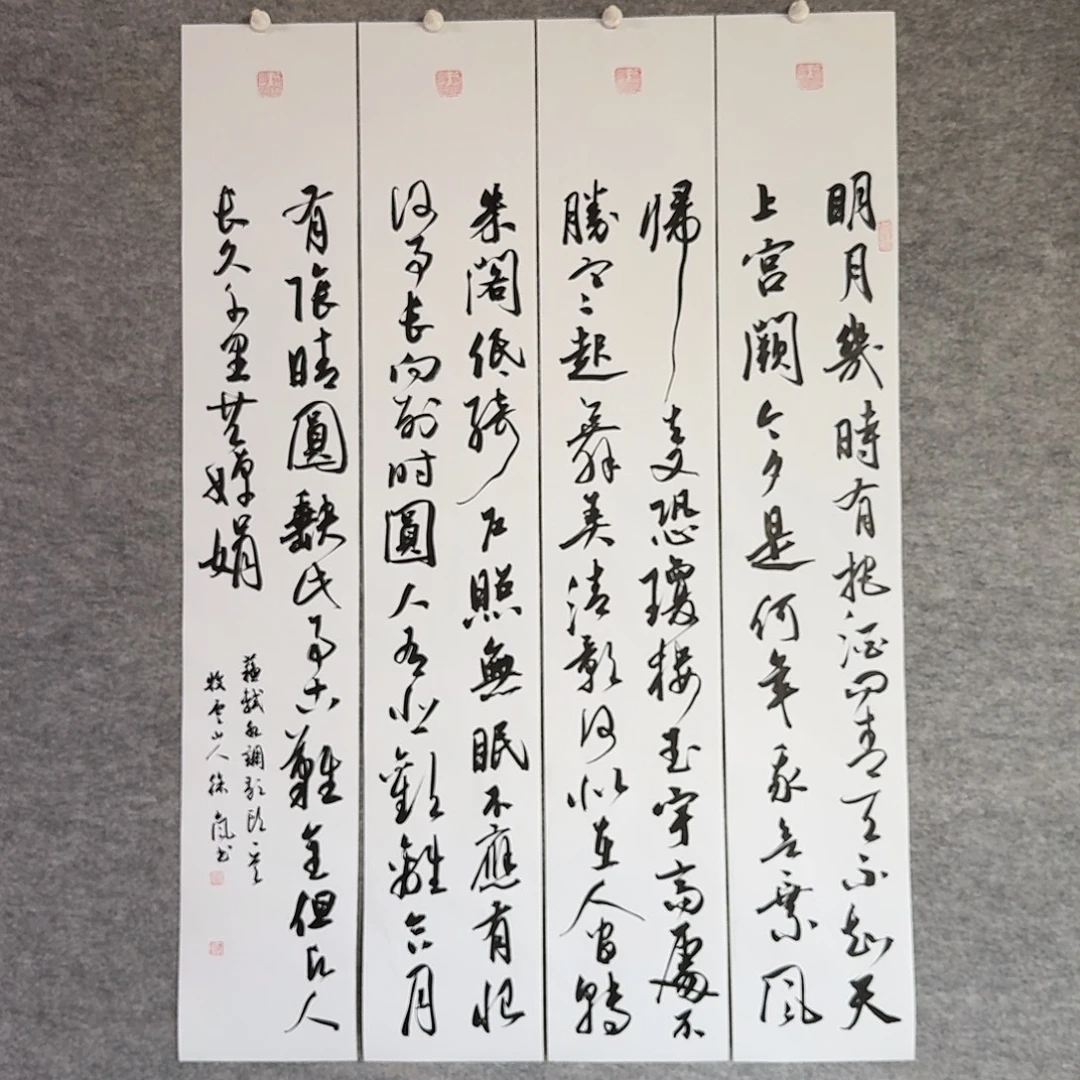 明月幾時有把酒問青天不知天
上宮闕今夕是何年我欲乘風
歸去又恐瓊樓玉宇高處不
勝寒起舞弄清影何似在人間轉
朱閣低綺戶照無眠不應有恨
何事長向別时圓人有悲歡離合月
有陰晴圓缺此事古難全但願人
長久千里共嬋娟
蘇軾水調歌頭一首
牧雲山人徐嵐書